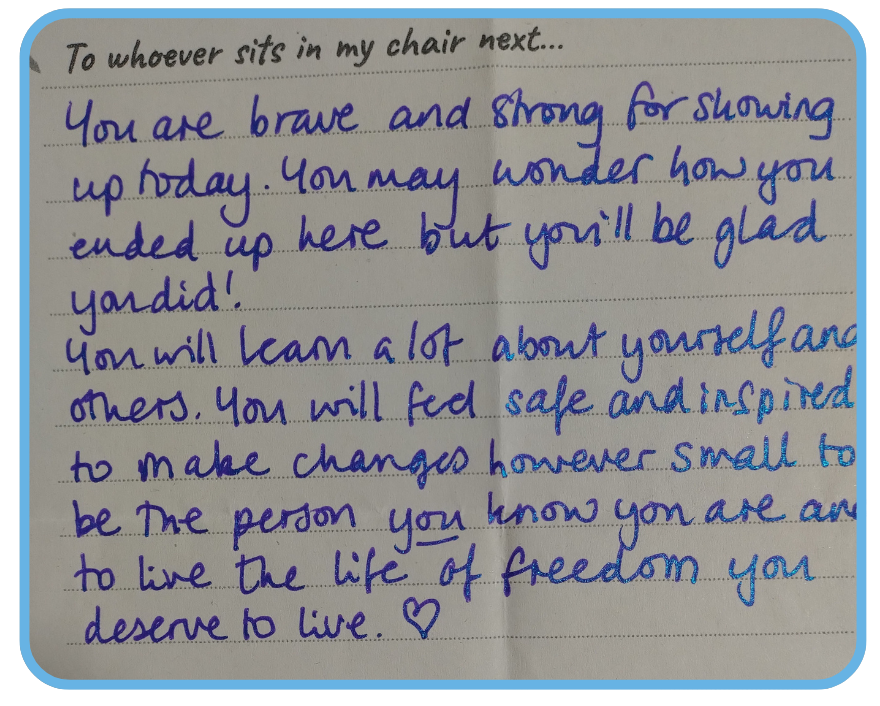 To whoever sits in my chair next...
You are brave and strong for showing
up today. You may wonder how you
ended up here but you'll be glad
you did!
You will learn a lot about yourself and
others. You will feel safe and inspired
to make changes however small to
be the person you know you are and
to live the life of freedom you
deserve to live. ♡